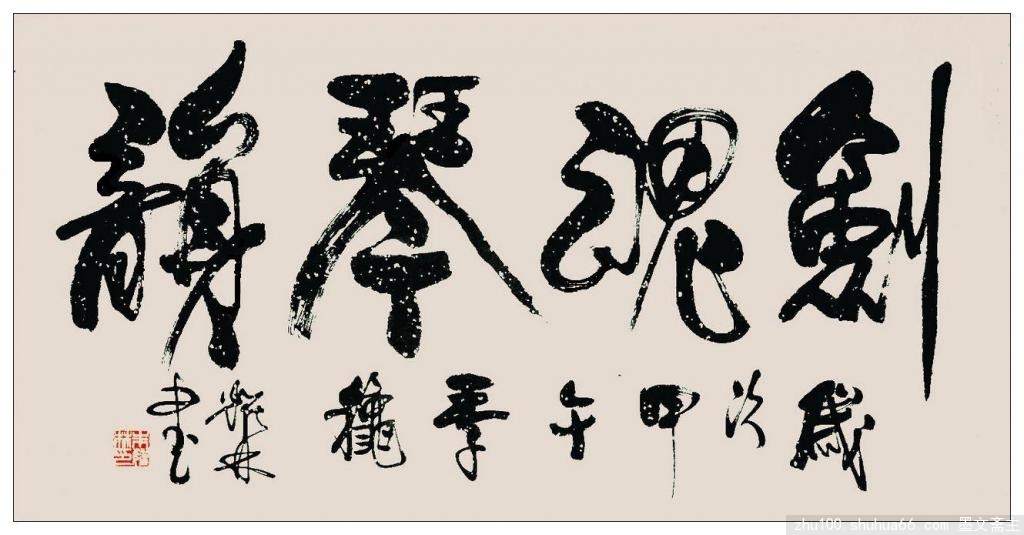 劍魂琴韻
歲次甲午季龝
林書
zhu100.shuhua66.com 墨文斋主